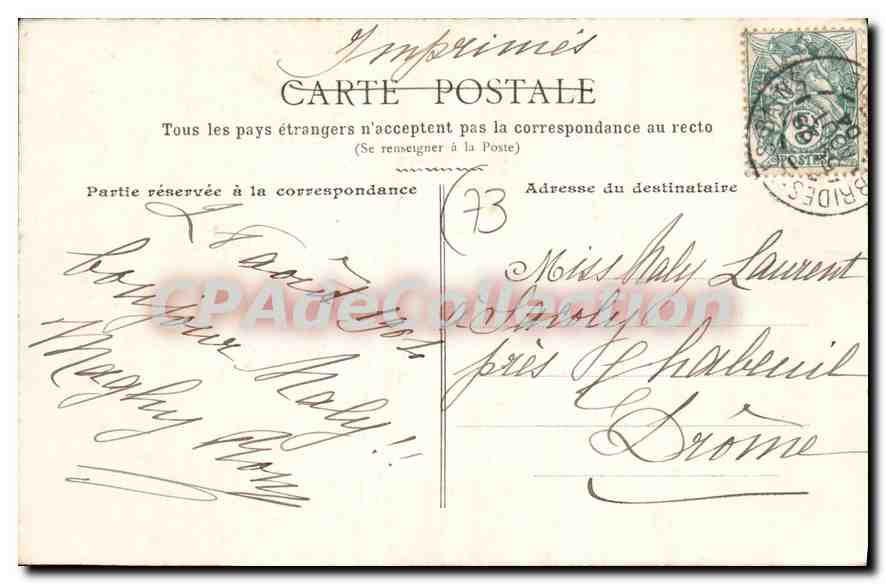 Imprimés
CARTE POSTALE
Tous les pays étrangers n'acceptent pas la correspondance au recto
(Se renseigner à la Poste)
Partie réservée à la correspondance
Adresse du destinataire
73
août 190
bonjour Maly!!
Maghy
Miss Maly Laurent
à
près Chabeuil
Drôme
5
POSTES
BRIDES
CPAdeCollection